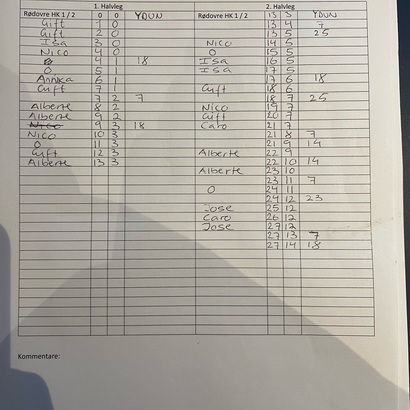 1. Halvleg 2. Halvleg
Rødovre HK 1 / 2 0 0 YDUN Rødovre HK 1 / 2 13 3 YDUN
Gift 1 0 13 4 7
Gift 2 0 13 5 25
Isa 3 0 Nico 14 5
Nico 4 0 O 15 5
4 1 18 Isa 16 5
O 5 1 Isa 17 5
Annica 6 1 17 6 18
Gift 7 1 Gift 18 6
7 2 7 18 7 25
Alberte 8 2 Nico 19 7
Alberte 9 2 Gift 20 7
9 3 18 Caro 21 7
Nico 10 3 21 8 7
O 11 3 21 9 14
Gift 12 3 Alberte 22 9
Alberte 13 3 22 10 14
Alberte 23 10
23 11 7
O 24 11
24 12 23
Jose 25 12
Caro 26 12
Jose 27 12
27 13 7
27 14 18
Kommentare: